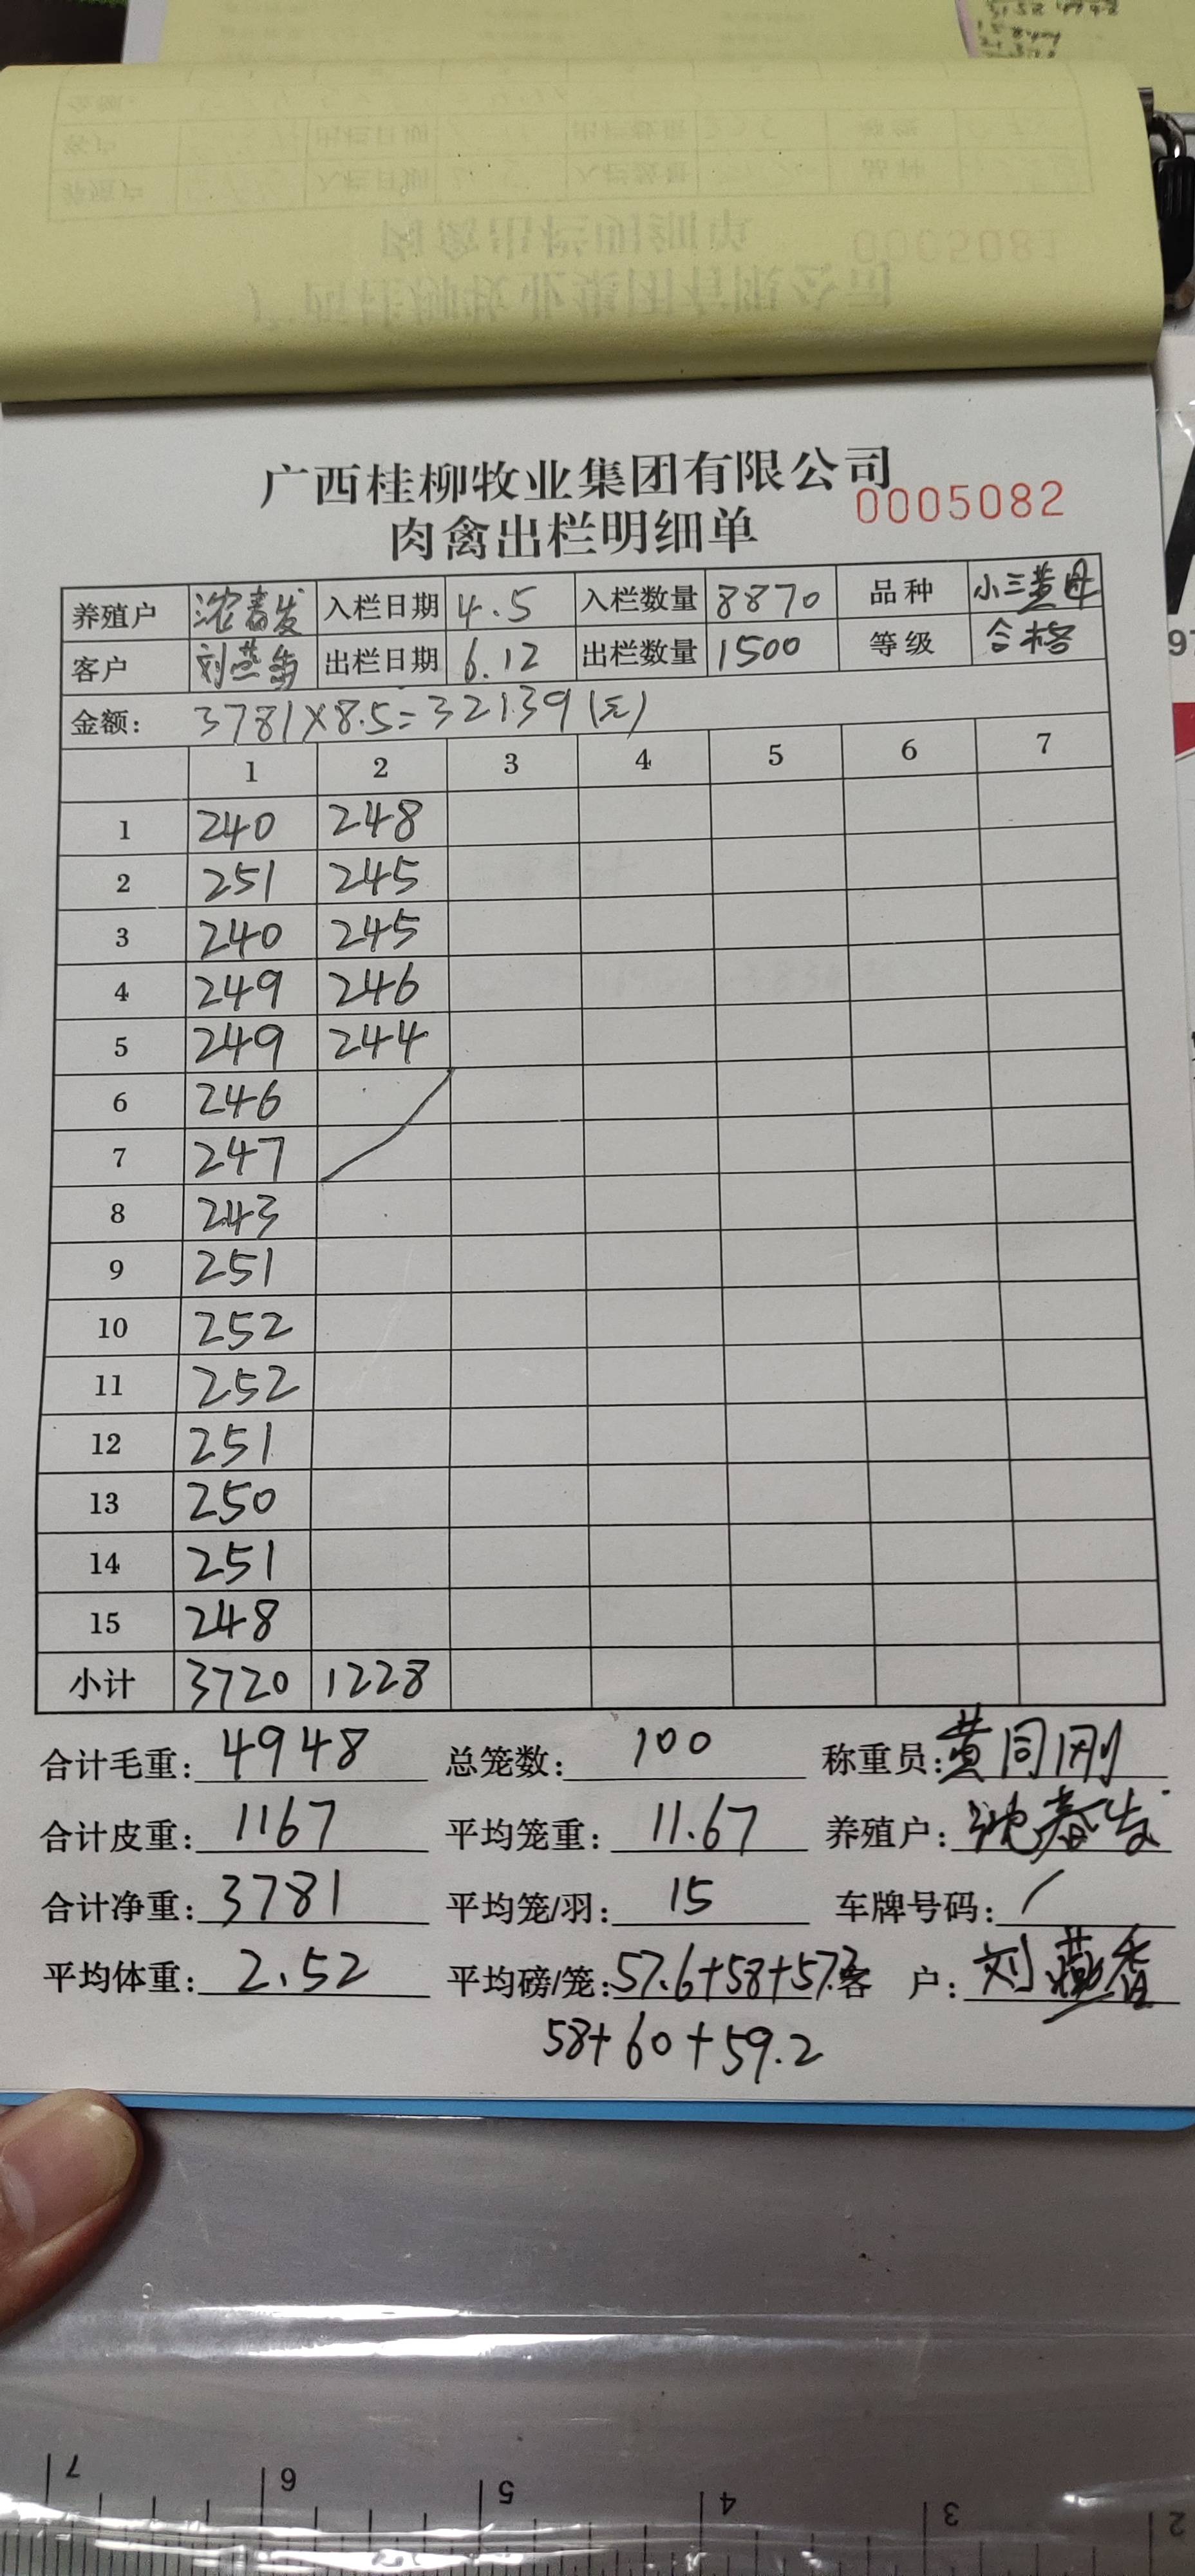 广西桂柳牧业集团有限公司
肉禽出栏明细单 0005082
养殖户 入栏日期 4.5 入栏数量 8870 品种 小三黄母
客户 出栏日期 6.12 出栏数量 1500 等级 合格
金额： 3781×8.5=32139(元)
1 2 3 4 5 6 7
1 240 248
2 251 245
3 240 245
4 249 246
5 249 244
6 246
7 247
8 243
9 251
10 252
11 252
12 251
13 250
14 251
15 248
小计 3720 1228
合计毛重： 4948 总笼数： 100 称重员： 黄同刚
合计皮重： 1167 平均笼重： 11.67 养殖户： 沈春发
合计净重： 3781 平均笼/羽： 15 车牌号码： /
平均体重： 2.52 平均磅/笼： 57.6+58+57.2 客户： 刘燕香
58+60+59.2
7 6 5 4 3 2